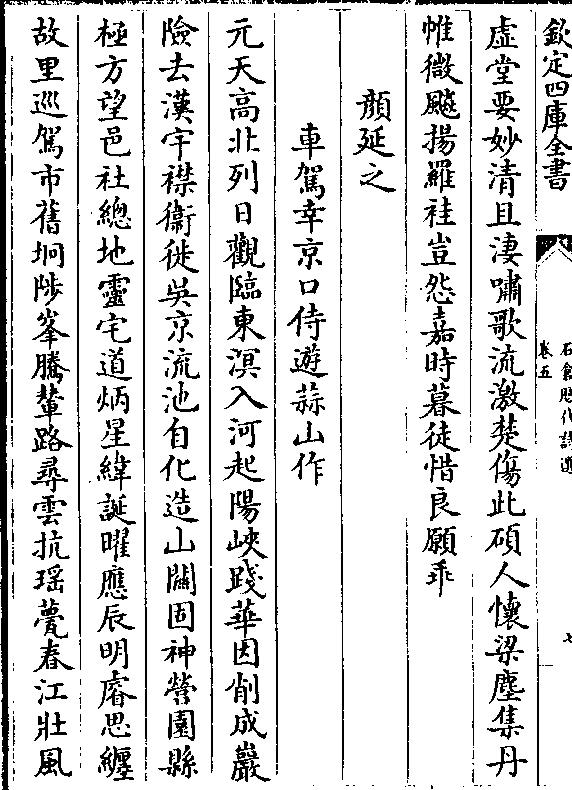 欽定四庫全書
石倉歷代詩選
卷五
七
虛堂要妙清且淒嘯歌流激楚傷此碩人懷梁塵集丹
帷微飈揚羅袿豈怨嘉時暮徒惜良願乖
顏延之
車駕幸京口侍遊蒜山作
元天高北列日觀臨東溟入河起陽峽踐華因削成巖
險去漢宇襟衞徙吳京流池自化造山關固神營園縣
極方望邑社總地靈宅道炳星緯誕曜應辰明睿思纒
故里巡駕市舊坰陟峯騰輦路尋雲抗瑶甍春江壯風